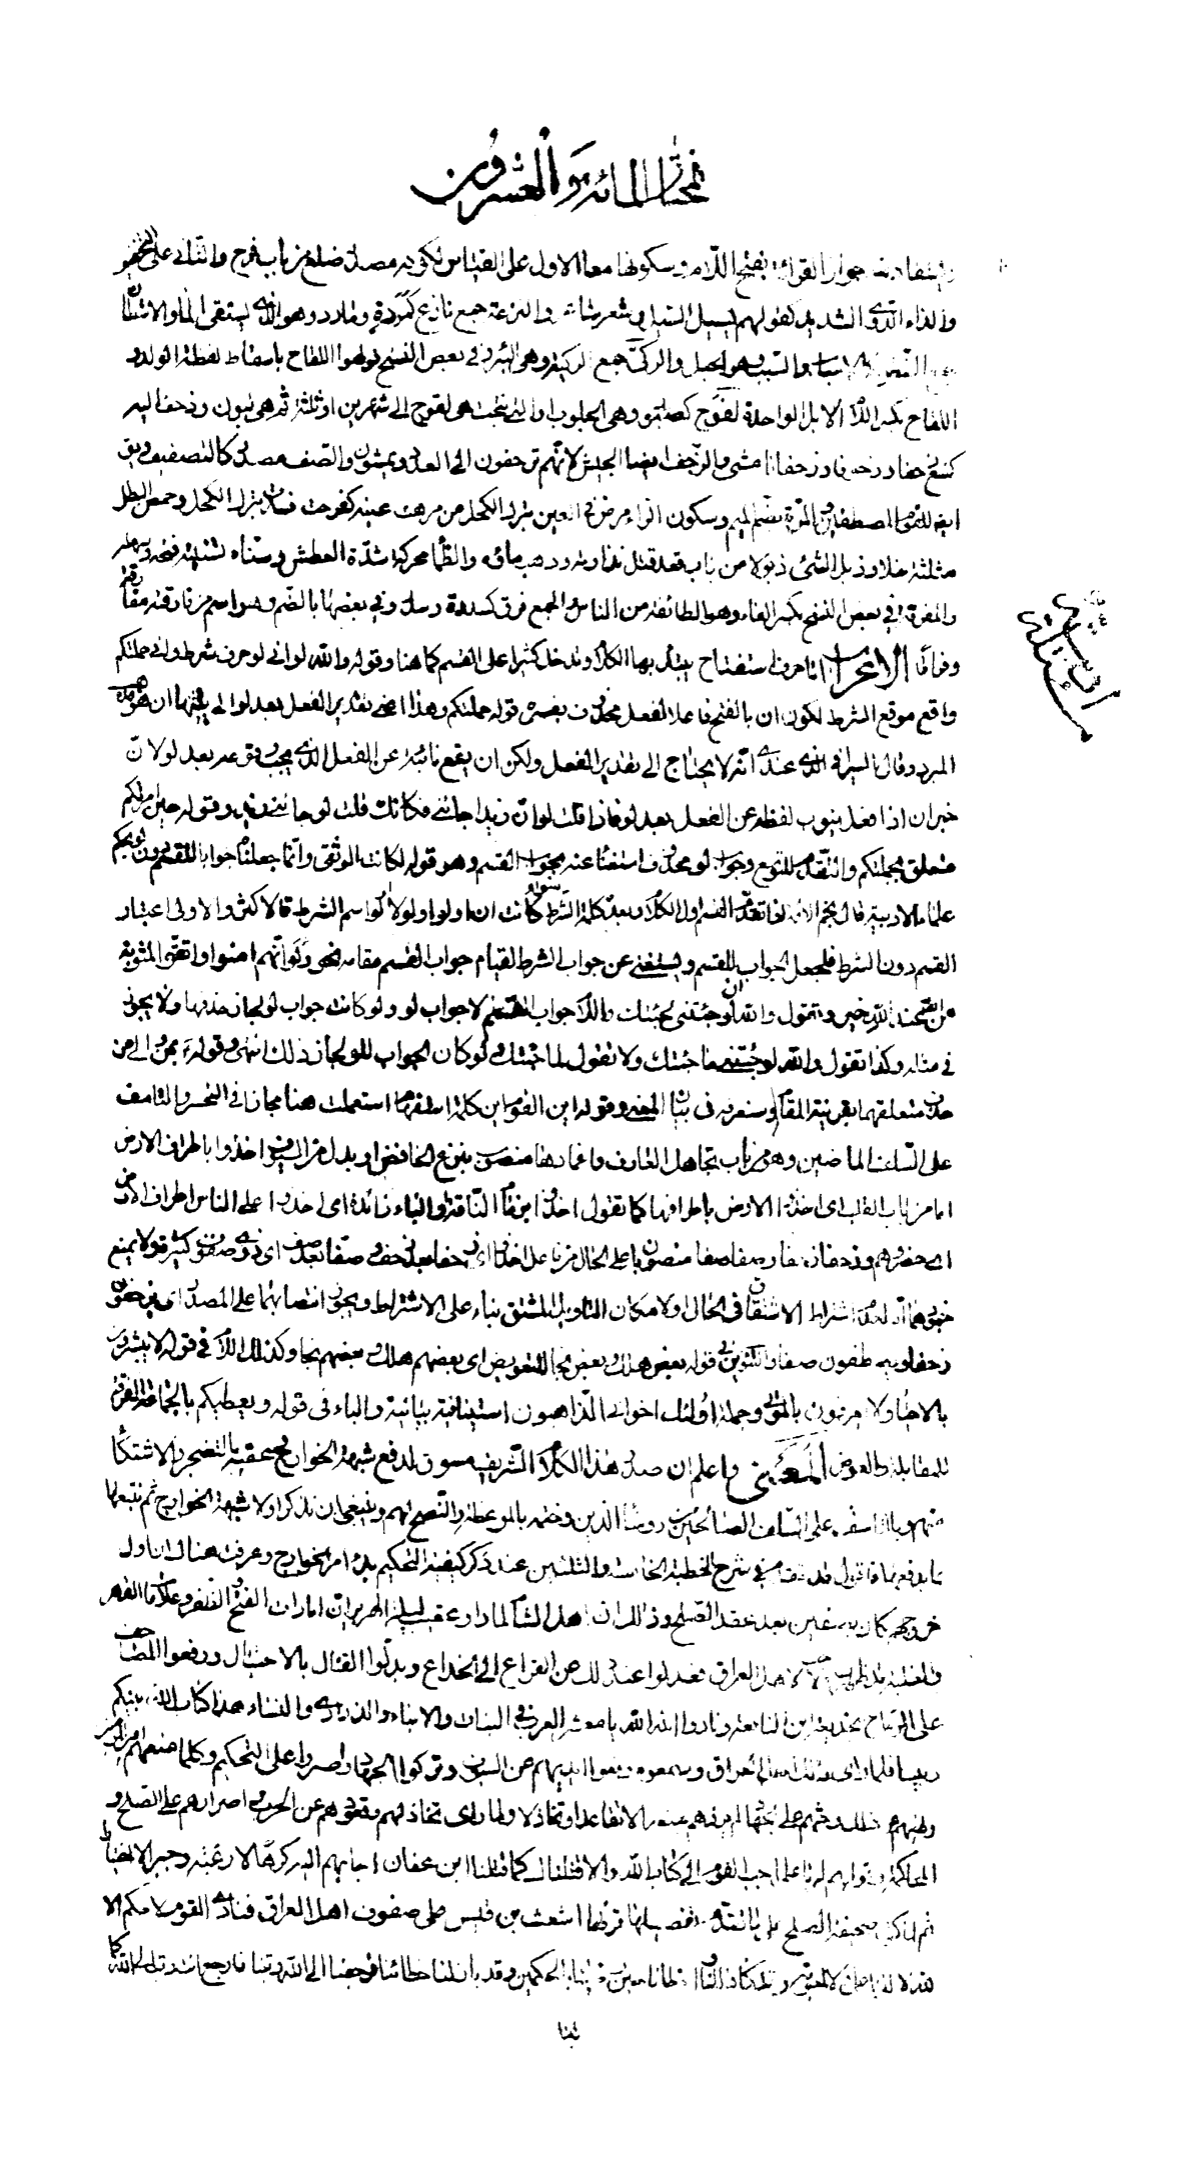 المختار المائة والعشرون
جواز القرائة بفتح اللام وسكونها معا الاول على القياس لكونه مصدر ضلع من باب فرح والثاني على التخفيف
والداء الدوى الشديد كقولهم ليل وشعر شاعر والنزعة جمع نازع كمردة ومارد وهو الذى يستقى الماء والاشطان
وهو الحبل والركى جمع الركية وهو البئر وفى بعض النسخ وله اللقاح باسقاط لفظة الولد و
اللقاح بكسر اللام الابل الواحدة لقوح كصبور وهى الحلوب او التى نتجت هى لقوح الى شهرين او ثلثة ثم هى لبون وزحف اليه
كمنع زحفا وزحوفا وزحفانا مشى والزحف ايضا الجيش لانهم يزحفون الى العدو ويمشون والصف مصدر كالتصفيف ويق
ايضا للقوم المصطفين والمرة بضم الميم وسكون الراء مرض فى العين بترك الكحل من مرهت عينه كفرحت فسدت بترك الكحل وخمص البطن
مثلثة خلا وذبل الشىء ذبولا من باب قعد قتل نداوته وذهب مائه والظمأ محركة شدة العطش
والفرقة فى بعض النسخ بكسر الفاء وهو الطائفة من الناس والجمع فرق كسدرة وسدر وفى بعضها بالضم وهو اسم من فارقته مفارقة
وفراقا الاعراب اما حرف استفتاح يبتدء بها الكلام وتدخل كثيرا على القسم كما هنا وقوله والله لو انى لو حرف شرط وانى حملتكم
واقع موقع الشرط لكون ان بالفتح فاعلا لفعل محذوف يفسره قوله حملتكم وهذا اعنى تقدير الفعل بعد لو
المبرد وقال السيرافى الذى عندى انه لا يحتاج الى تقدير الفعل ولكن ان يقع نائبة عن الفعل الذى يجب وقوعه بعد لو لان
خبر ان اذا فعل ينوب لفظه عن الفعل بعد لو فاذا قلت لو ان زيدا جائنى فكانك قلت لو جائنى زيد وقوله حين امرتكم
متعلق بحملتكم والتقدم للتوسع وجواب لو محذوف استغناء عنه بجواب القسم وهو قوله لكانت الوثقى وانما جعلناه جوابا للقسم دون لو بحكم
علماء الادبية قال نجم الائمة اذا تقدم القسم اول الكلام وبعده كلمة الشرط سواء كانت ان او لو او لولا او اسم الشرط فالاكثر والاولى اعتبار
القسم دون الشرط فيجعل الجواب للقسم ويستغنى عن جواب الشرط لقيام جواب القسم مقامه نحو ولو انهم امنوا واتقوا لمثوبة
من عند الله خير وتقول والله ان لو جئتنى لجئتك واللام جواب القسم لا جواب لو ولو كانت جواب لو لجاز حذفها ولا يجوز
فى مثله وكذا تقول والله لو جئتنى ما جئتك ولا تقول لما جئتك ولو كان الجواب للو لجاز ذلك انتهى وقوله بمن والى من
حذف متعلقهما بقرينة المقام وستعرفه فى بيان المعنى وقوله اين القوم اين كلمة استفهام استعملت هنا مجازا فى التحسر والتاسف
على السلف الماضين وهو من باب تجاهل العارف واغمادها منصوب بنزع الخافض او بدل من السيوف واخذوا باطراف الارض
اما من باب القلب اى اخذوا الارض باطرافها كما تقول اخذت بزمام الناقة او الباء زائدة اى اخذوا على الناس اطراف الارض من
اى حصروهم وزحفا زحفا وصفا صفا منصوبان على الحال من فاعل اخذوا اى زحفا بعد زحف وصفا بعد صف اى ذوى صفوف كثيرة ولا يمنع
جمودهما اما لعدم اشتراط الاشتقاق فى الحال اولا مكان التاويل بالمشتق بناء على الاشتراط ويجوز انتصابهما على المصدر اى يزحفون
زحفا ويصطفون صفا والتنوين فى قوله بعض هلك وبعض نجا للتعويض اى بعضهم هلك وبعضهم نجا وكذلك اللام فى قوله لا يبشرون
بالاحياء ولا يعزون بالموتى وجملة اولئك اخوانى الذاهبون استينافية بيانية والباء فى قوله ويعطيكم بالجماعة الفرقة
للمقابلة والعوض المعنى واعلم ان صدر هذا الكلام الشريف مسوق لدفع شبهة الخوارج وتعقبه بالتضجر والاشتكاء
منهم وبالتاسف على السلف الصالحين من رؤساء الدين وختمه بالموعظة والنصح لهم وينبغى ان نذكر اولا شبهة الخوارج ثم نتبعها
بدفعها فنقول قد تقدم فى شرح الخطبة الخامسة والثلثين عند ذكر كيفية التحكيم بدء امر الخوارج وعرفت هناك ان اول
خروجهم كان بصفين بعد عقد الصلح وذلك ان اهل الشام لما راوا عقيب ليلة الهرير ان امارات الفتح والظفر وعلامات القهر
والغلبة لاهل العراق فعدلوا عند ذلك عن القراع الى الخداع وبدلوا القتال بالاحتيال ورفعوا المصاحف
على الرماح بخديعة ابن النابغة ونادوا الله الله يا معشر العرب فى البنات والابناء والذرارى والنساء هذا كتاب الله بيننا وبينكم
فلما راى ذلك اهل العراق وسمعوه رفعوا ايديهم عن السيوف وتركوا الجهاد واصروا على التحكيم وكلما منعهم امير المؤمنين
وحثهم على الجهاد لم يزدهم الا تقاعدا وتخاذلا ولما راى تخاذلهم وقعودهم عن الحرب واصرارهم على الصلح و
المحاكمة وقولهم له يا على اجب القوم الى كتاب الله والا قتلناك كما قتلنا ابن عفان اجابهم اليه كرها لا رغبة وجبرا لا اختيارا
ثم لما كتب صحيفة الصلح على ما تقدم تفصيلها قرئها اشعث بن قيس على صفوف اهل العراق فنادى القوم لا حكم الا
لله فارجع انت وتب الى الله كما
تبنا